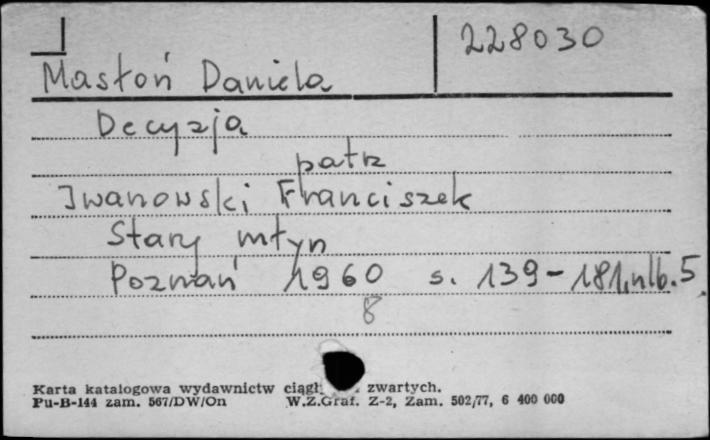 228030
Masłoń Daniela
Decyzja
patrz
Iwanowski Franciszek
Stary młyn
Poznań 1960 s. 139-181, nlb. 5
8
Karta katalogowa wydawnictw ciągł zwartych.
Pu-B-144 zam. 567/DW/On W.Z.Graf. Z-2, Zam. 502/77, 6 400 000